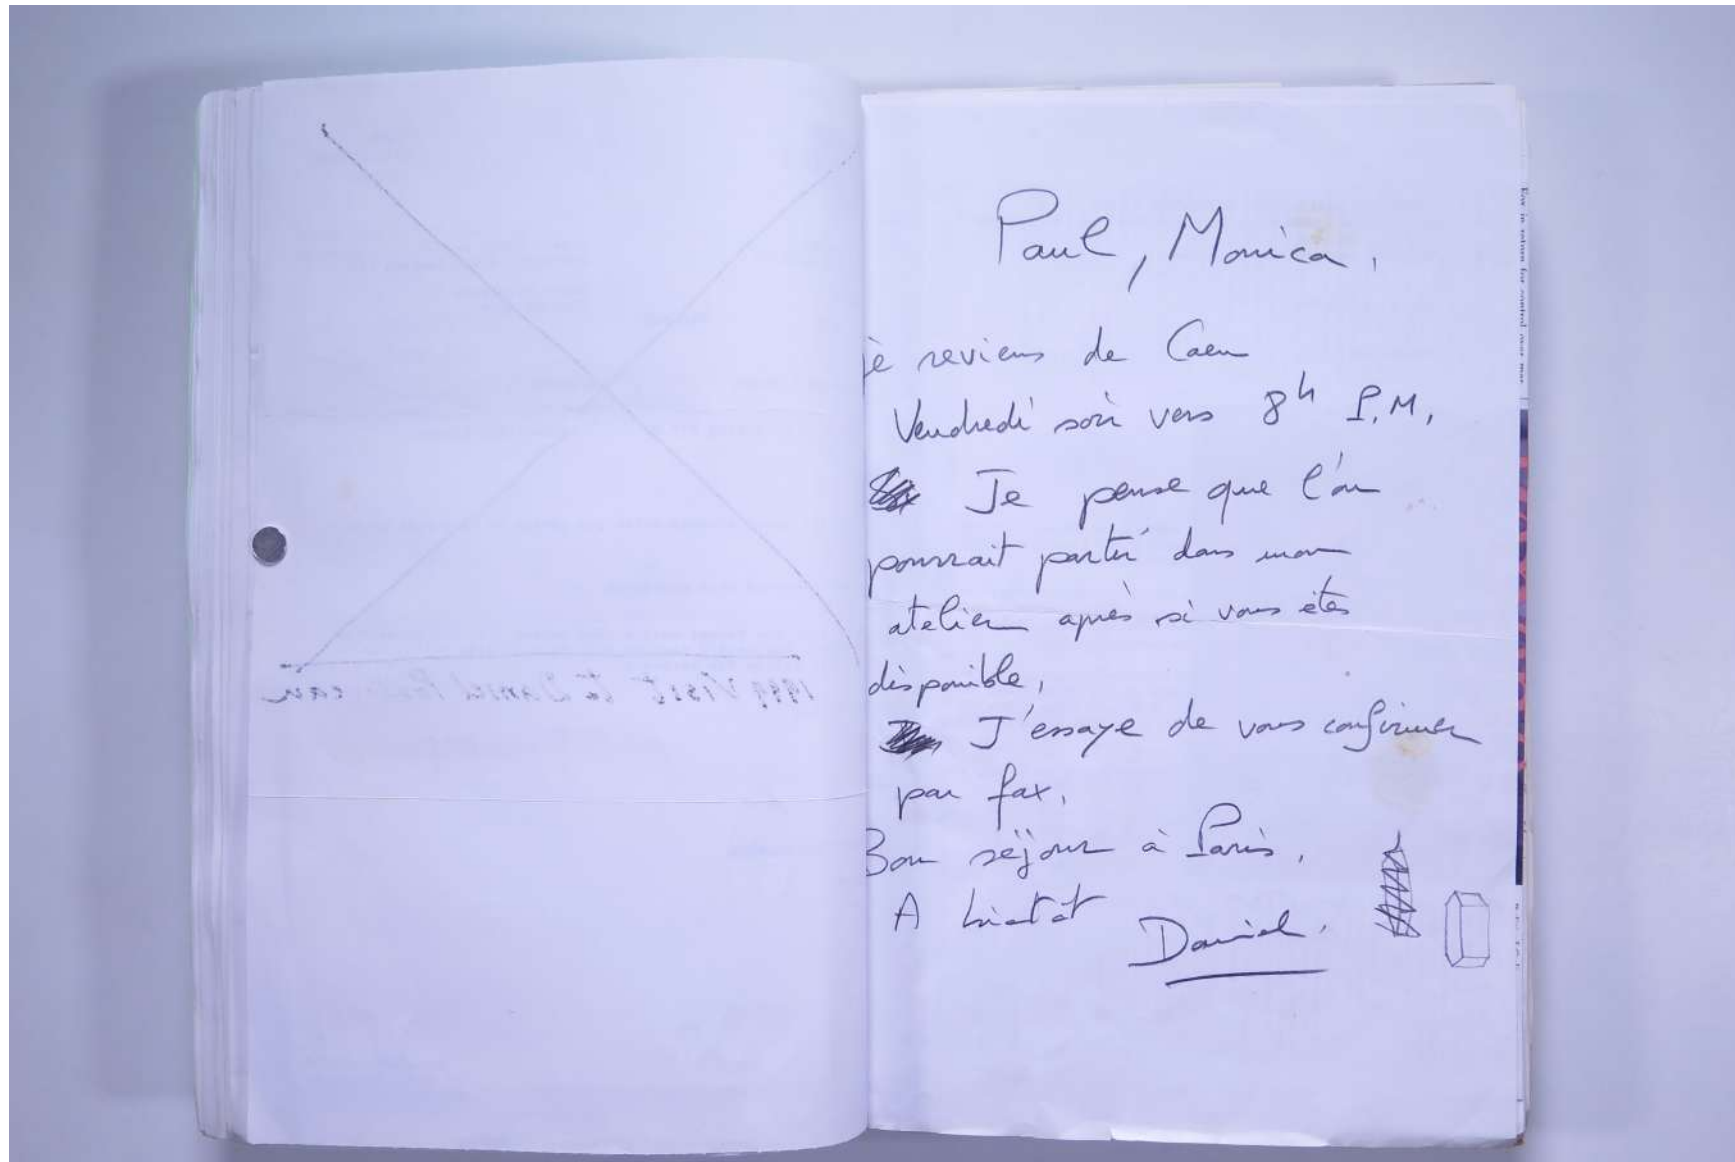 1999 Visit to Daniel
Paul, Monica.
je reviens de Caen
Vendredi soir vers 8h P.M.
Je pense que l'on
pourrait partir dans mon
atelier après si vous êtes
disponible,
J'essaye de vous confirmer
par fax.
Bon séjour à Paris.
A bientôt
Daniel.